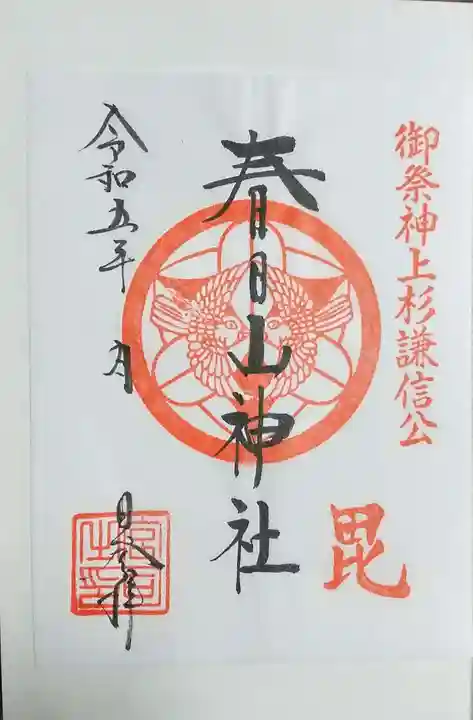 御祭神上杉謙信公
毘
春日山神社
令和五年 月
日参拝
宮司之印